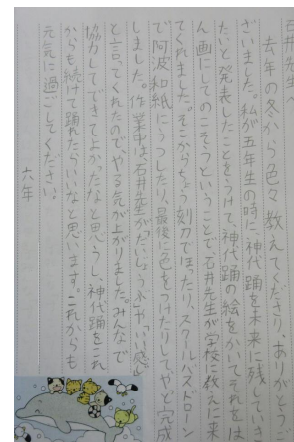 石井先生へ
去年の冬から色々教えてくださり、ありがとうご
ざいました。私が五年生の時に、神代踊を未来に残していき
たいと発表したことをうけて、神代踊の絵をかいてそれをは
ん画にしてのこそうということで、石井先生が学校に教えに来
てくれました。そこからちょう刻刀でほったり、スクールバスドローン
で阿波和紙にうつしたり、最後に色をつけたりしてやと完成
しました。作業中は、石井先生が「だいじょう本」や「いい感じ」
と言ってくれたのでやる気が上がりました。みんなで
協力してできて上かったなと思うし、神代踊をこれ
からも続けて踊れたらいいなと思います。これからも
元気に過ごしてください。
六年